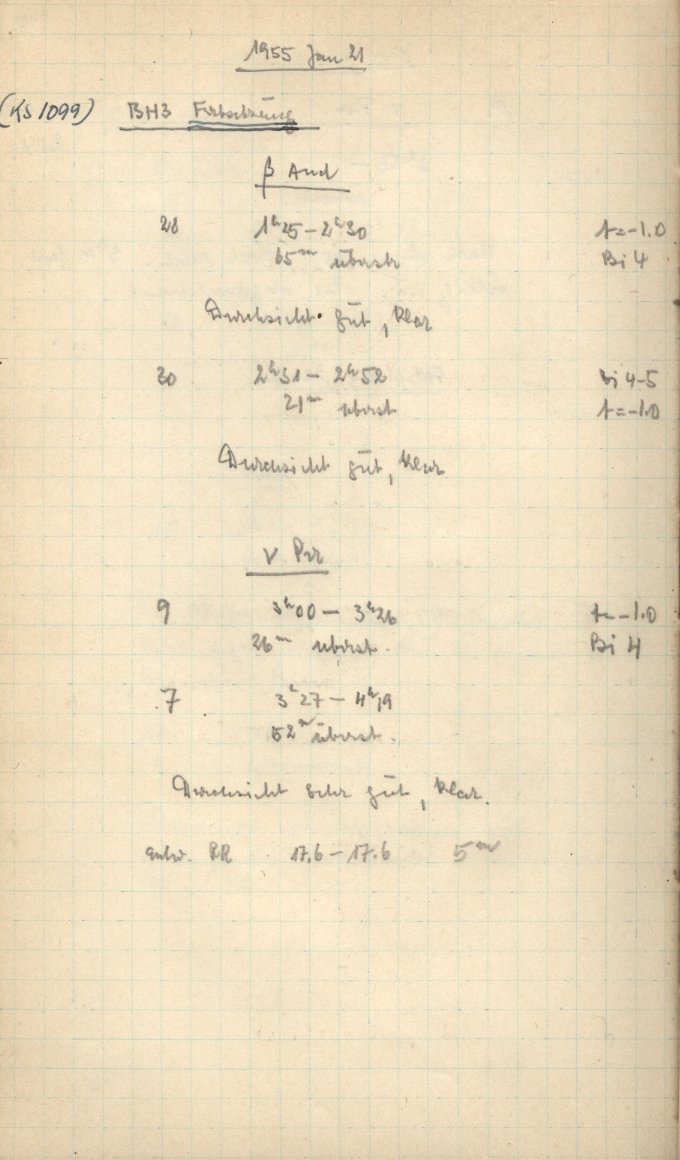 1955 Jan 21
(KS 1099) BH3 Fortsetzung
β And
28 1ʰ25 – 2ʰ30 t = -1.0
65ᵐ überst Bi 4
Durchsicht gut, klar
30 2ʰ31 – 2ʰ52 Bi 4-5
21ᵐ überst t = -1.0
Durchsicht gut, klar
ν Per
9 3ʰ00 – 3ʰ26 t = -1.0
26ᵐ überst. Bi 4
7 3ʰ27 – 4ʰ19
52ᵐ überst.
Durchsicht sehr gut, klar.
entw. RR 17.6 – 17.6 5ᵐ